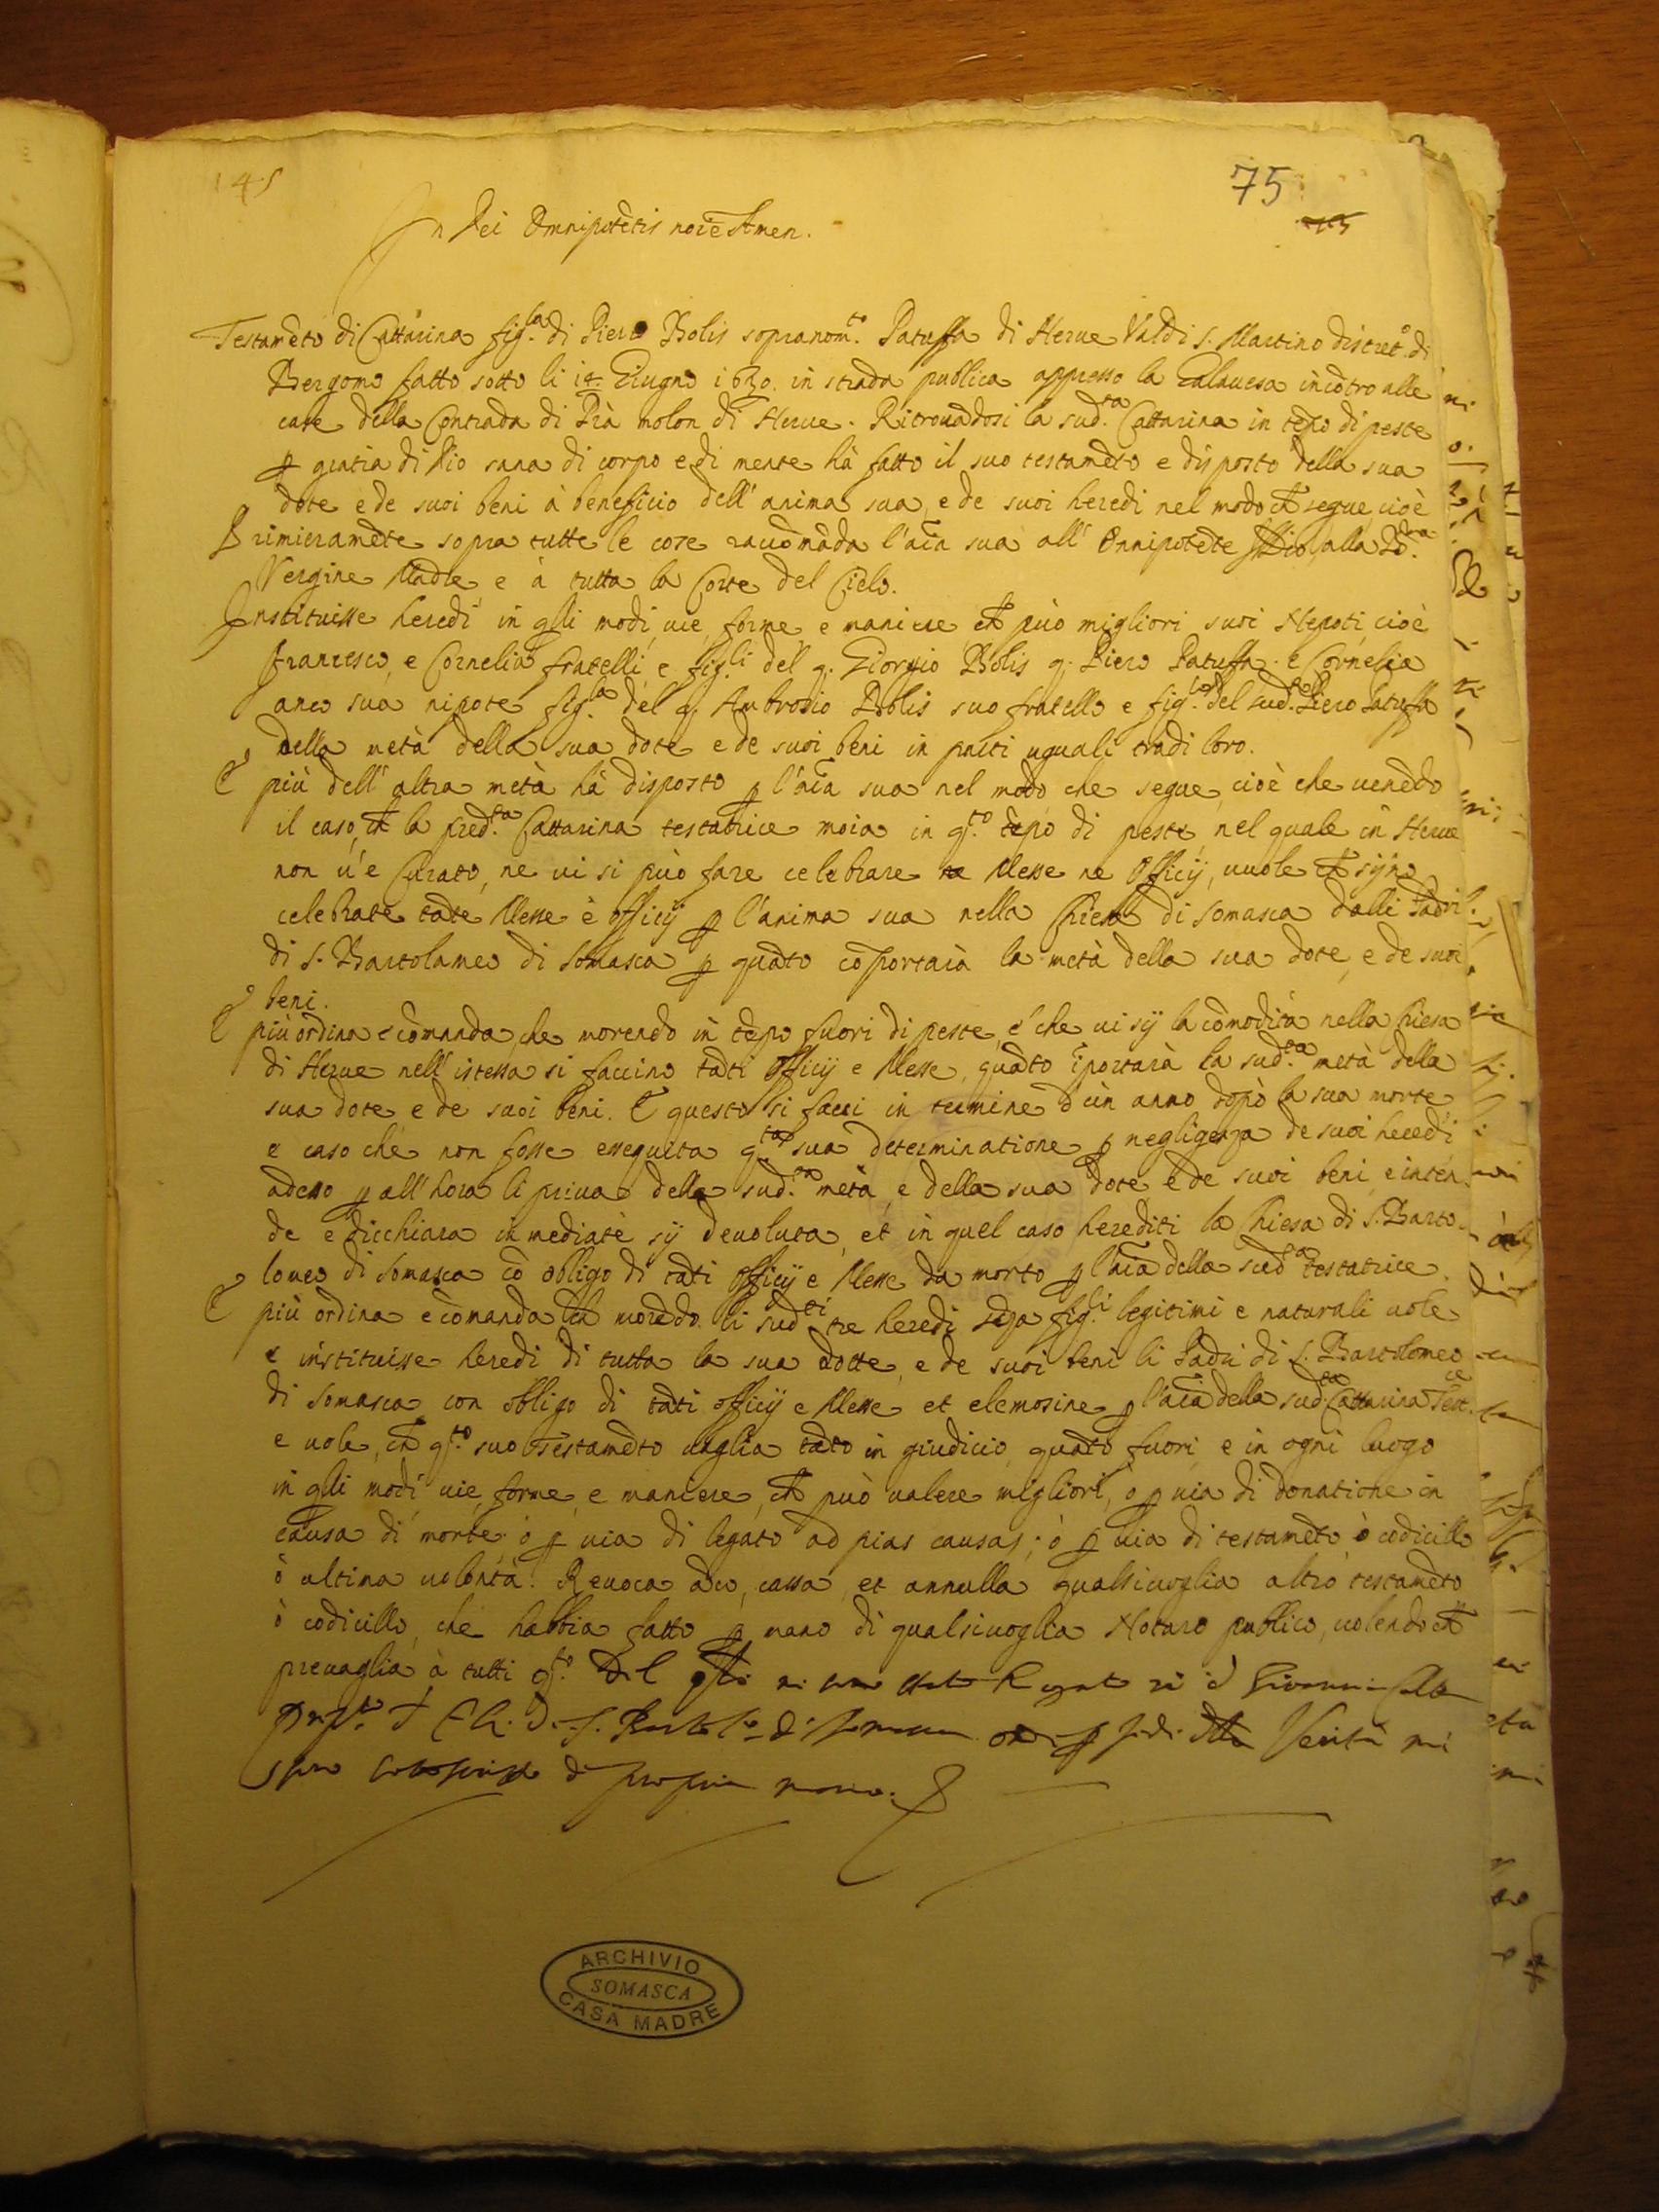 145
75
In Dei Omnipotẽtis noiẽ Amen.
Testamẽto di Cattarina fig.la di Piero Bolis sopranom.to Patuffa di Herue Val di S. Martino distret.o di
Bergomo fatto sotto li 14. Giugno 1630. in strada publica appresso la Galauesa incõtro alle
case della Contrada di Prà molon di Herue. Ritrouãdosi la sud.ta Cattarina in tẽpo di peste
p gratia di Dio sana di corpo e di mente hà fatto il suo testamẽto e disposto della sua
dote e de suoi beni à beneficio dell' anima sua, e de suoi heredi nel modo ch segue, cioè
Primieramẽte sopra tutte le cose raccomãda l'aĩa sua all' Onnipotẽte Iddio, alla B.ta
Vergine Madre, e à tutta la Corte del Cielo.
Instituisse heredi in gli modi, uie, forme e maniere ch può migliori suoi Nepoti, cioè
Francesco, e Cornelia fratelli, e fig.li del q. Giorgio Bolis q. Piero Patuffa. e Cornelia
anco sua nipote fig.a del q. Ambrosio Bolis suo fratello e fig.lo del sud.to Piero Patuffa
della metà della sua dote e de suoi beni in parti uguali trà di loro.
E più dell' altra metà hà disposto p l'aĩa sua nel modo che segue, cioè che uenẽdo
il caso, ch la pred.ta Cattarina testatrice moia in q.to tẽpo di peste, nel quale in Herue
non u'e Curato, ne ui si può fare celebrare Messe ne Officij, uuole ch sijno
celebrate tãte Messe e officij p l'anima sua nella Chiesa di Somasca dalli Padri
di S. Bartolameo di Somasca p quãto cõportarà la metà della sua dote, e de suoi
beni.
E più ordina e comanda, che morendo in tẽpo fuori di peste, e che ui sij la cõmodità nella Chiesa
di Herue nell' istessa si faccino tãti Officij e Messe, quãto ĩportarà la sud.ta metà della
sua dote, e de suoi beni. E questo si facci in termine d'ún anno dopò la sua morte
e caso che non fosse essequita q.ta sua determinatione p negligenza de suoi heredi
adesso p all'hora li priua della sud.ta metà, e della sua dote, e de suoi beni, e inten
de e dicchiara immediatè sij deuoluta, et in quel caso herediti la Chiesa di S. Barto
lomeo di Somasca cõ obligo di tãti officij e Messe da morto p l'aĩa della sud.ta testatrice.
E più ordina e comanda ch morẽdo li sud.ti tre heredi sẽza fig.li legitimi e naturali uole
e instituisse heredi di tutta la sua dotte, e de suoi beni li Padri di S. Bartolomeo
di Somasca con obligo di tãti officij e Messe et elemosine p l'aĩa della sud.ta Cattarina Test.ce
e uole, ch q.to suo Testamẽto uaglia tãto in giudicio, quãto fuori, e in ogni luogo
in gli modi, uie, forme, e maniere, ch può ualere migliori, ò p uia di donatione in
causa di morte, ò p uia di legato ad pias causas, ò p uia di testamẽto ò codicillo
ò ultima uolontà. Reuoca ãco, cassa, et annulla qualsiuoglia altro testamẽto
ò codicillo, che habbia fatto p mano di qualsiuoglia Notaro publico, uolendo ch
preuaglia à tutti q.to Del Giovanni
di Somasca Verità mi
sono sotoscritto di propria mano.
ARCHIVIO
SOMASCA
CASA MADRE